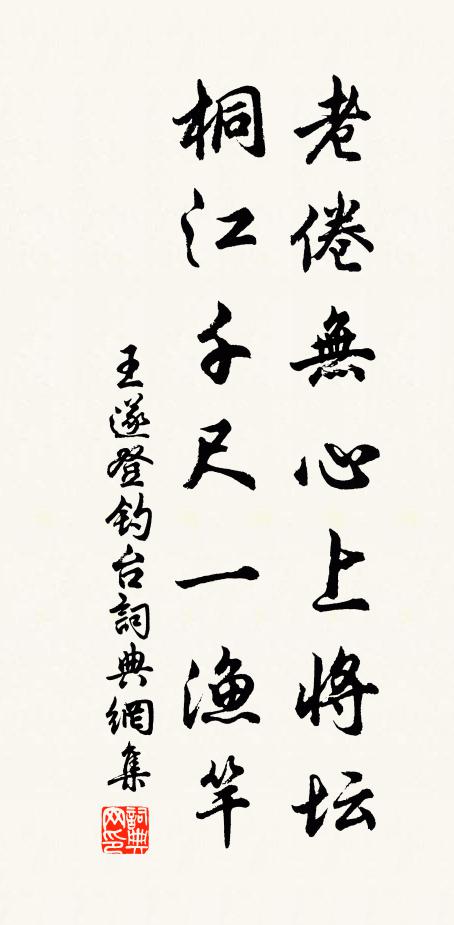 老倦無心上將坛
桐江千尺一漁竿
王遂登釣台詞典網集
詞典网印